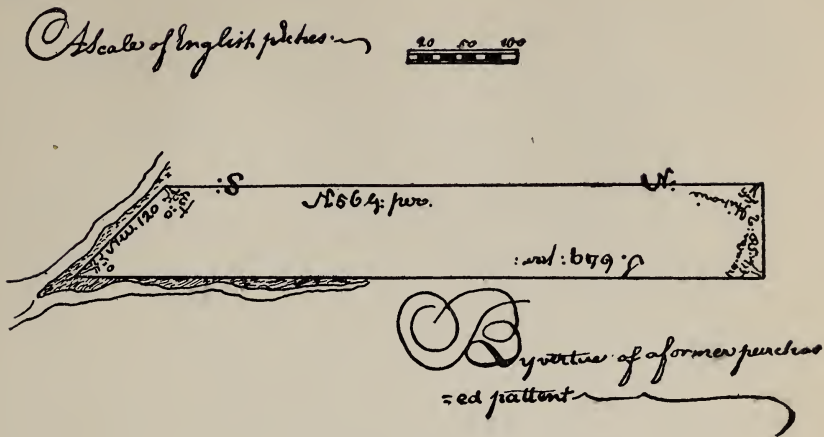 A Scale of English pirches
20 50 100
:S
N:
N. 564: per.
N:W. 120
S. 649: per:
By vertue of a former purchas
=ed pattent